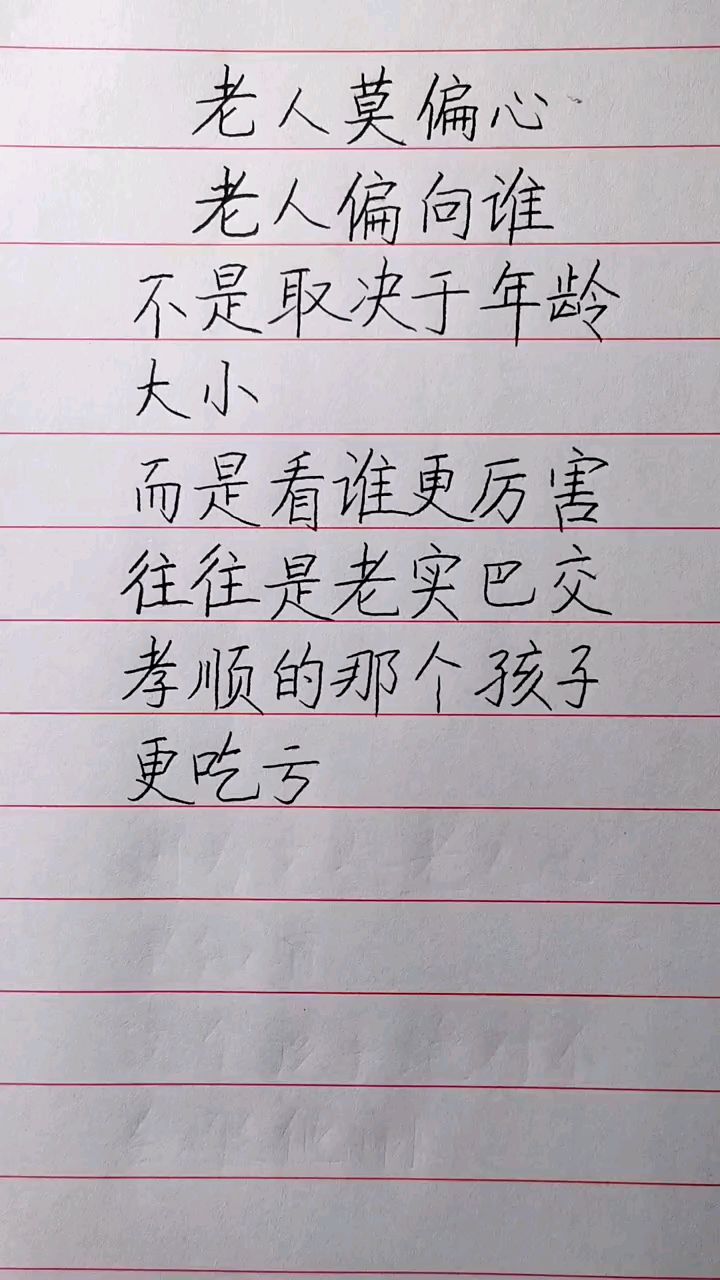 老人莫偏心
老人偏向谁
不是取决于年龄
大小
而是看谁更厉害
往往是老实巴交
孝顺的那个孩子
更吃亏